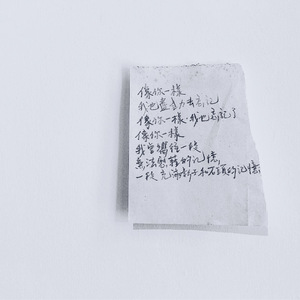 像你一樣
我也盡全力去忘記
像你一樣,我也忘記了
像你一樣
我曾嚮往一段
無法慰藉的記憶,
一段充滿影子和石頭的記憶。